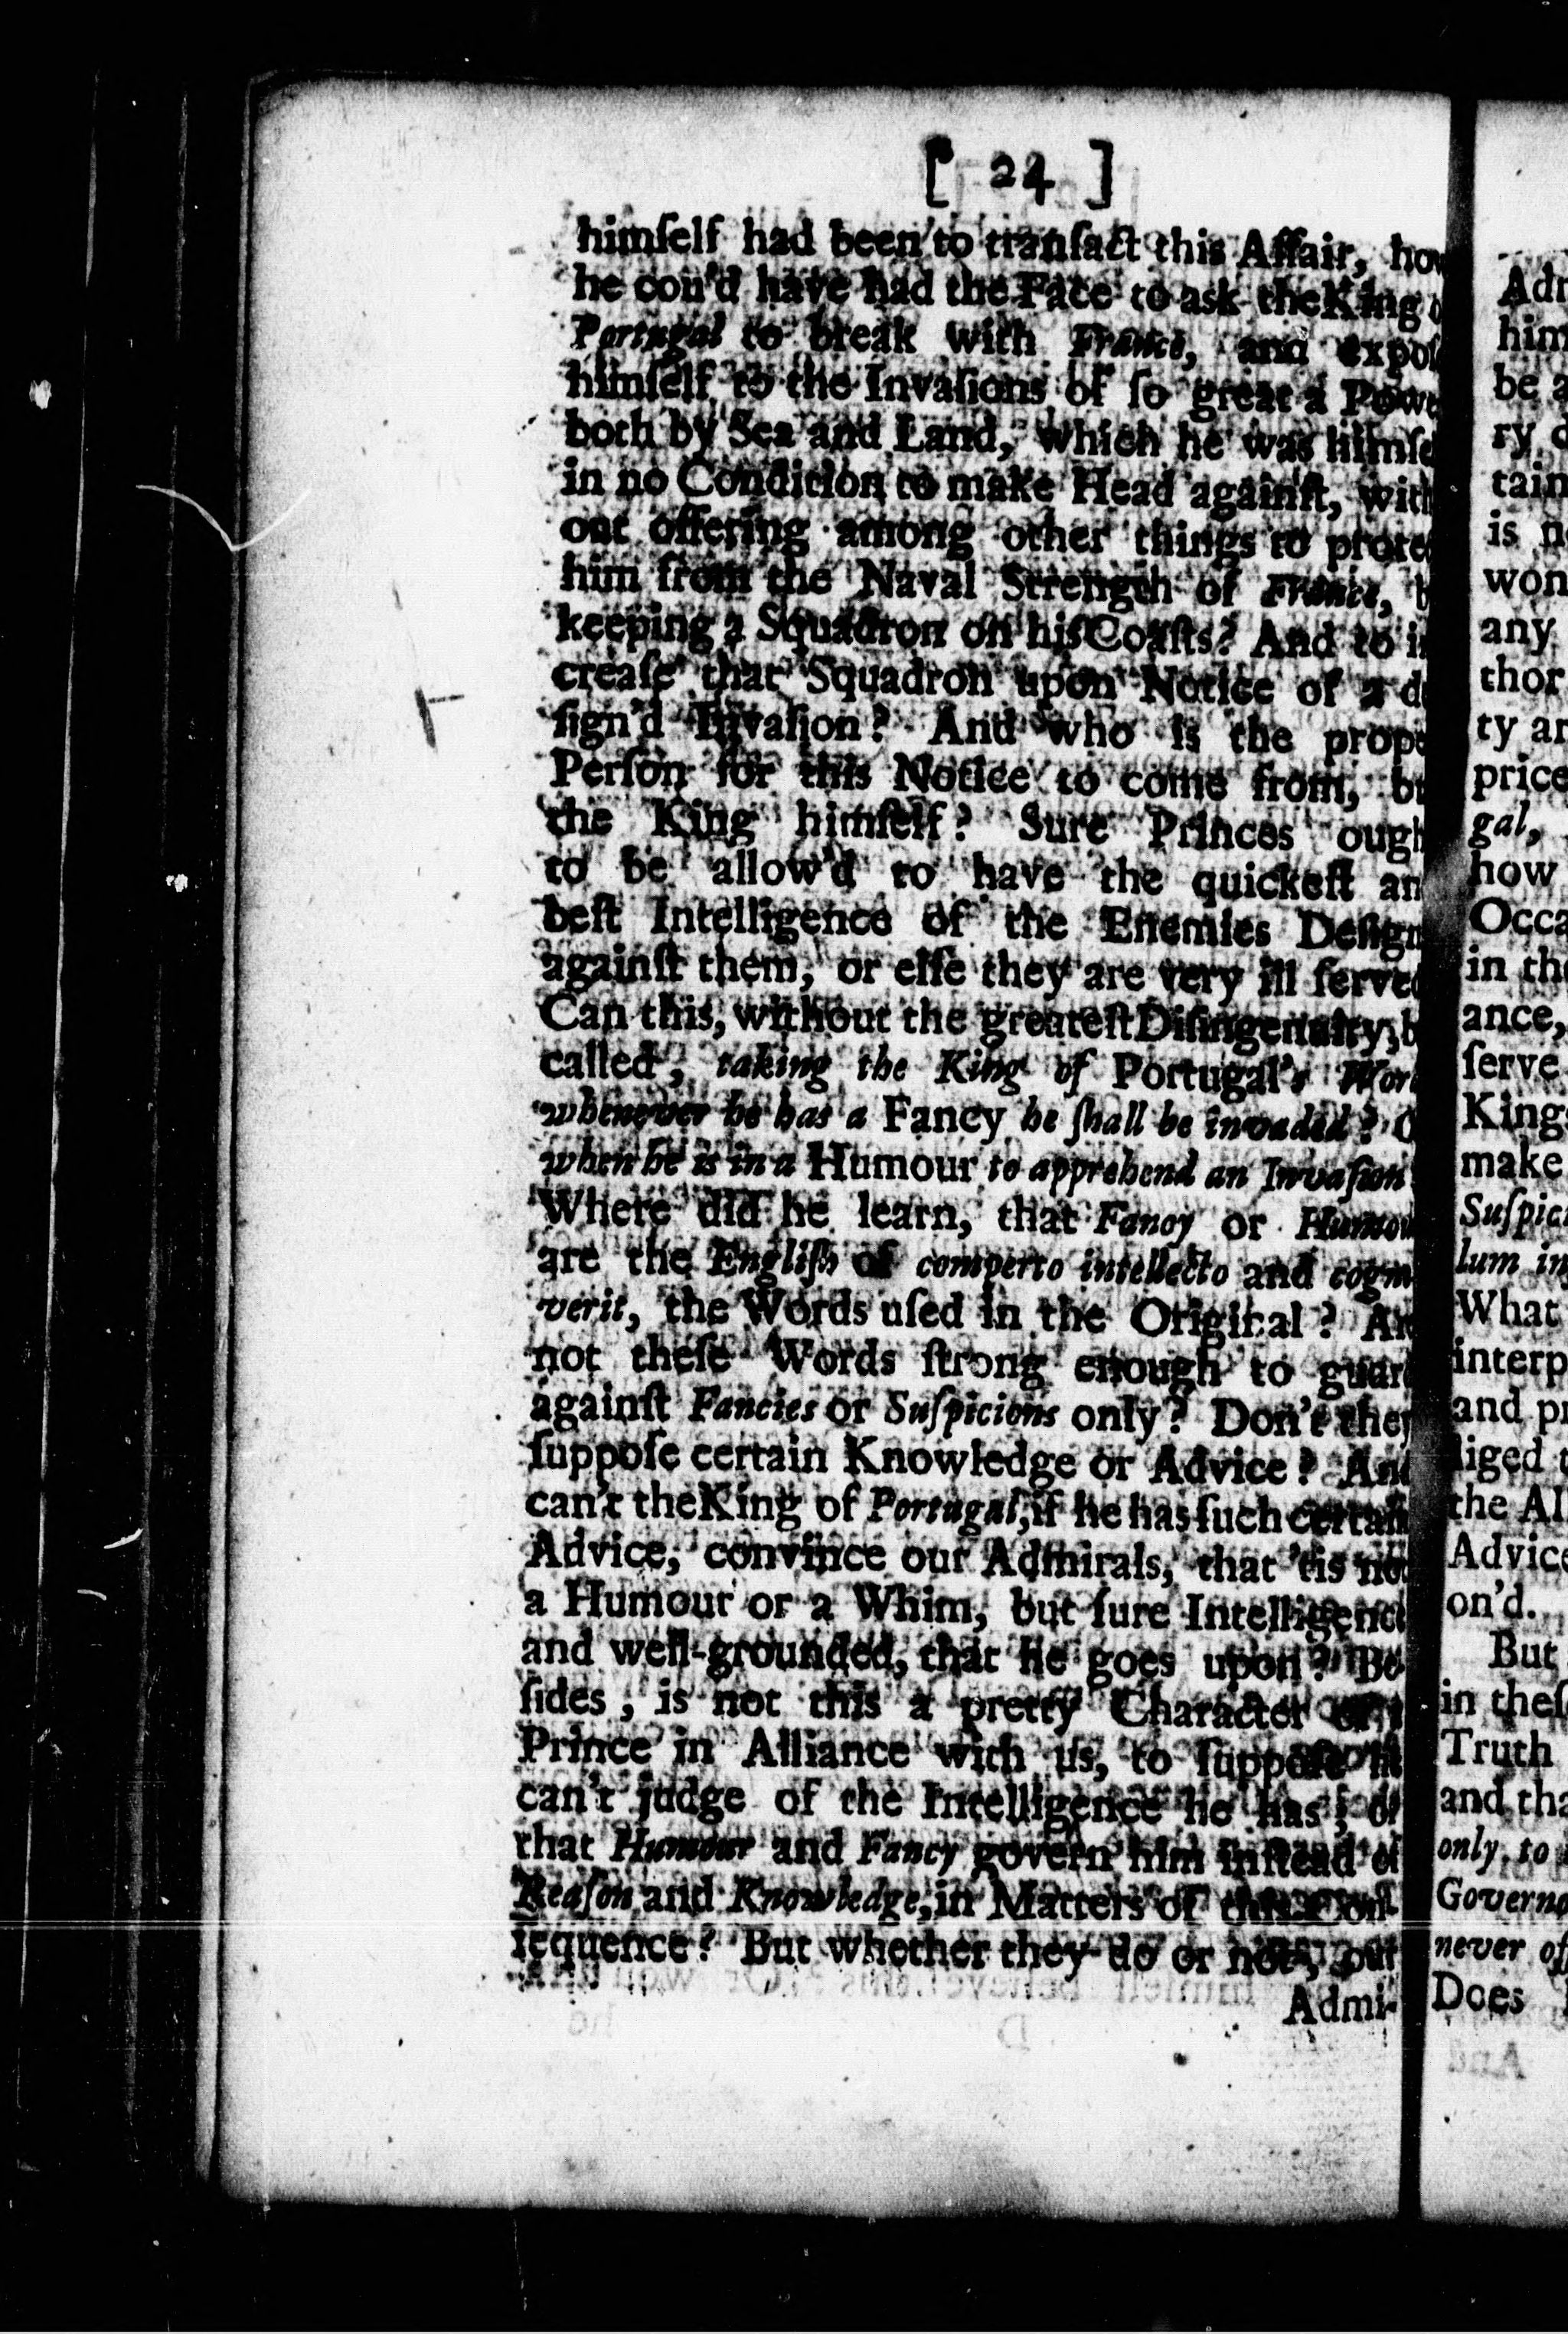 [ 24 ]
himſelf had been to tranſact this Affair, how
he cou'd have had the Face to ask the King o
Portugal to break with France, and expoſ
himſelf to the Invaſions of ſo great a Powe
both by Sea and Land, which he was himſe
in no Condition to make Head againſt, with
out offering among other things to prote
him from the Naval Strength of France, b
keeping a Squadron on his Coaſts? And to in
creaſe that Squadron upon Notice of a de
ſign'd Invaſion? And who is the prope
Perſon for this Notice to come from, bu
the King himſelf? Sure Princes ough
to be allow'd to have the quickeſt an
beſt Intelligence of the Enemies Deſign
againſt them, or elſe they are very ill ſerved
Can this, without the greateſt Diſingenuity, b
called, taking the King of Portugal's Word
whenever he has a Fancy he ſhall be invaded? O
when he is in a Humour to apprehend an Invaſion
Where did he learn, that Fancy or Humou
are the Engliſh of comperto intellecto and cogno
verit, the Words uſed in the Original? Ar
not theſe Words ſtrong enough to guard
againſt Fancies or Suſpicions only? Don't they
ſuppoſe certain Knowledge or Advice? And
can't the King of Portugal, if he has ſuch certain
Advice, convince our Admirals, that 'tis not
a Humour or a Whim, but ſure Intelligence
and well-grounded, that he goes upon? Be
ſides, is not this a pretty Character of a
Prince in Alliance with us, to ſuppoſe he
can't judge of the Intelligence he has; or
that Humour and Fancy govern him inſtead of
Reaſon and Knowledge, in Matters of this Con-
ſequence? But whether they do or not, our
Admi-
Adm
him
be a
ry
tain
is n
won
any
thor
ty an
price
gal,
how
Occa
in the
ance,
ſerve
Kings
make
Suſpic
lum in
What
interp
and pr
liged
the Al
Advice
on'd.
But
in theſ
Truth
and tha
only to
Governo
never of
Does